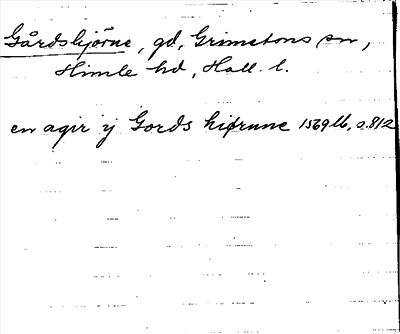 Gårdshjörne, gd, Grimetons sn,
Himle hd, Hall. l.
en agir ij Gords hiørnne 1569 lb, s. 812